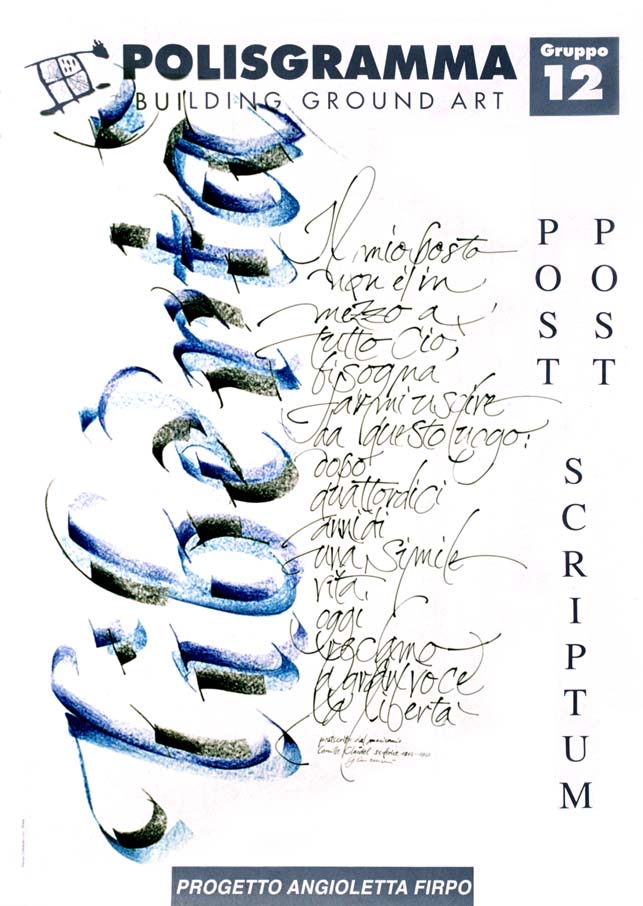 POLISGRAMMA
BUILDING GROUND ART
Gruppo
12
libertà
Il mio posto
non è in
mezzo a
tutto ciò,
bisogna
farmi uscire
da questo luogo:
dopo
quattordici
anni di
una simile
vita,
oggi
reclamo
a gran voce
la libertà
Camille Claudel
POST
POST
SCRIPTUM
PROGETTO ANGIOLETTA FIRPO